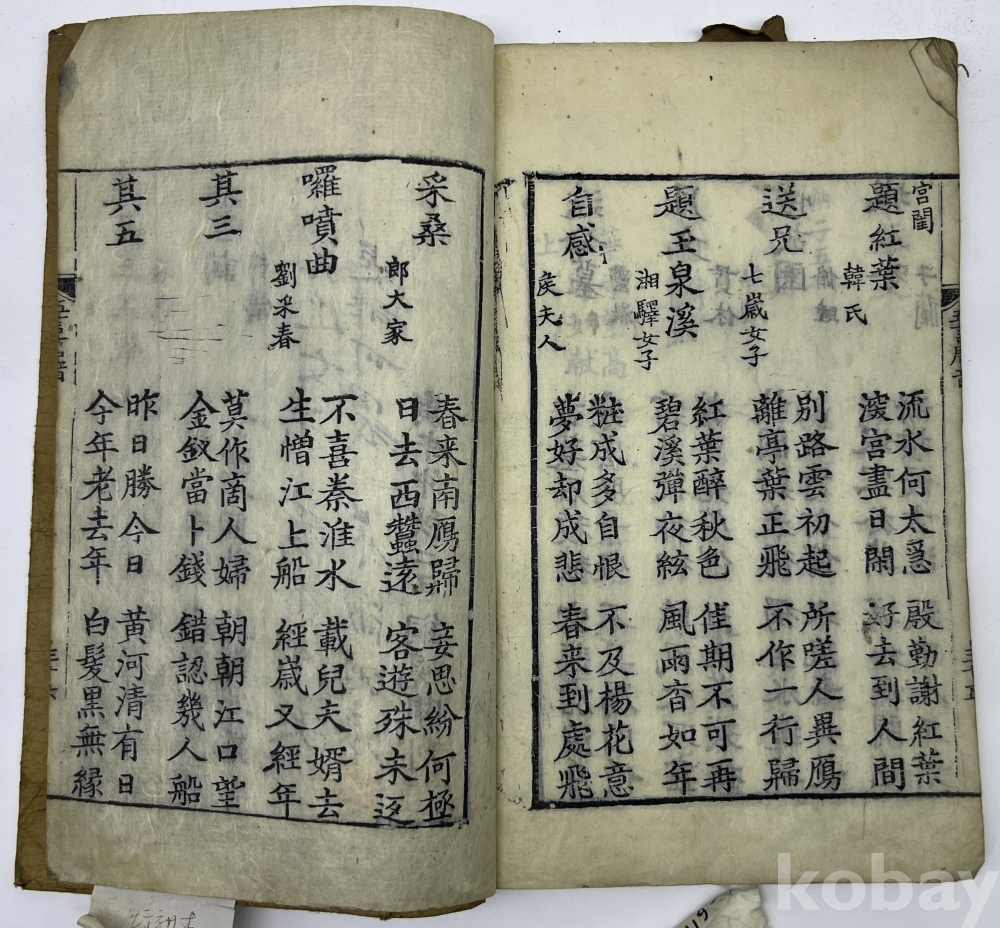 宮閨
題紅葉
韓氏
流水何太急
深宮盡日閒
殷勤謝紅葉
好去到人間
送兄
七歲女子
別路雲初起
離亭葉正飛
所嗟人異鴈
不作一行歸
題玉泉溪
湘驛女子
紅葉醉秋色
碧溪彈夜絃
佳期不可再
風雨杳如年
自感
侯夫人
粧成多自恨
夢好却成悲
不及楊花意
春来到處飛
采桑
郎大家
春来南鴈歸
日去西蠶遠
妾思紛何極
客遊殊未返
囉噴曲
劉采春
不喜秦淮水
生憎江上船
載兒夫婿去
經歲又經年
其三
莫作商人婦
金釵當卜錢
朝朝江口望
錯認幾人船
其五
昨日勝今日
今年老去年
黃河清有日
白髮黑無緣
kobay